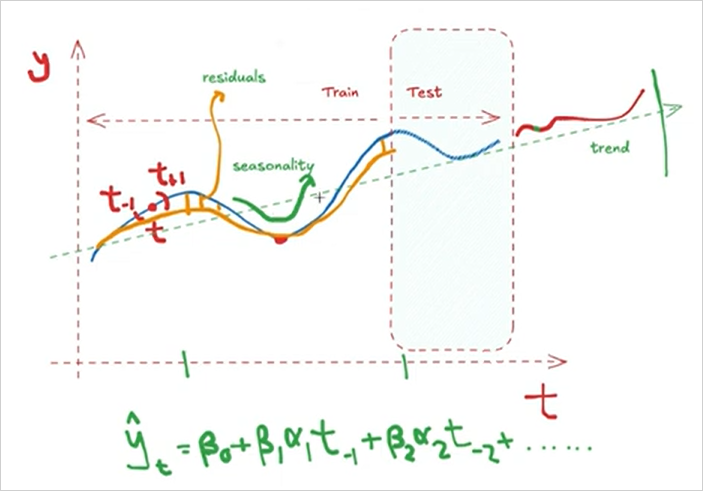 y
residuals
Train Test
seasonality
trend
t+1
t-1
t
t
ŷt = β0 + β1α1t-1 + β2α2t-2 + ......